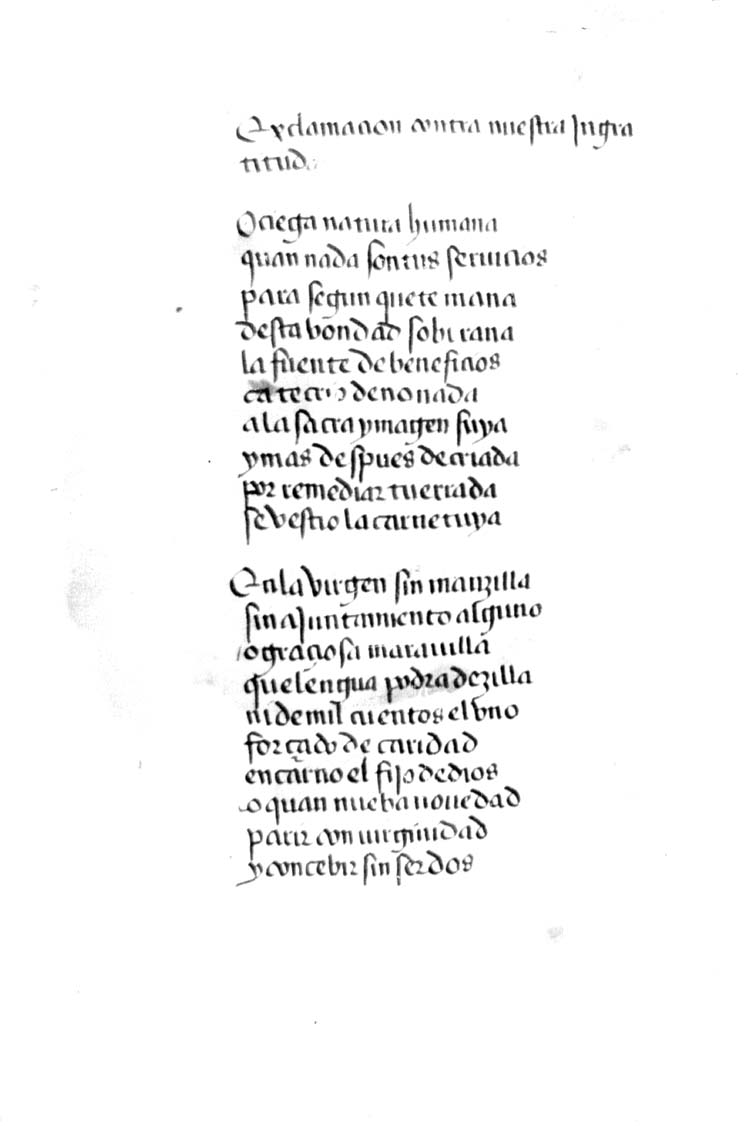 Exclamacion contra nuestra Ingra
titud.
O ciega natura humana
quan nada son tus seruicios
para segun que te mana
desta bondad sobirana
la fuente de beneficios
ca te crio de no nada
a la sacra ymagen suya
y mas despues de criada
por remediar tu errada
se vestio la carne tuya
En la virgen sin manzilla
sin ajuntamiento alguno
o graciosa marauilla
que lengua podra dezilla
ni de mil cuentos el vno
forçado de caridad
encarno el fijo de dios
o quan nueba nouedad
parir con uirginidad
y concebir sin ser dos